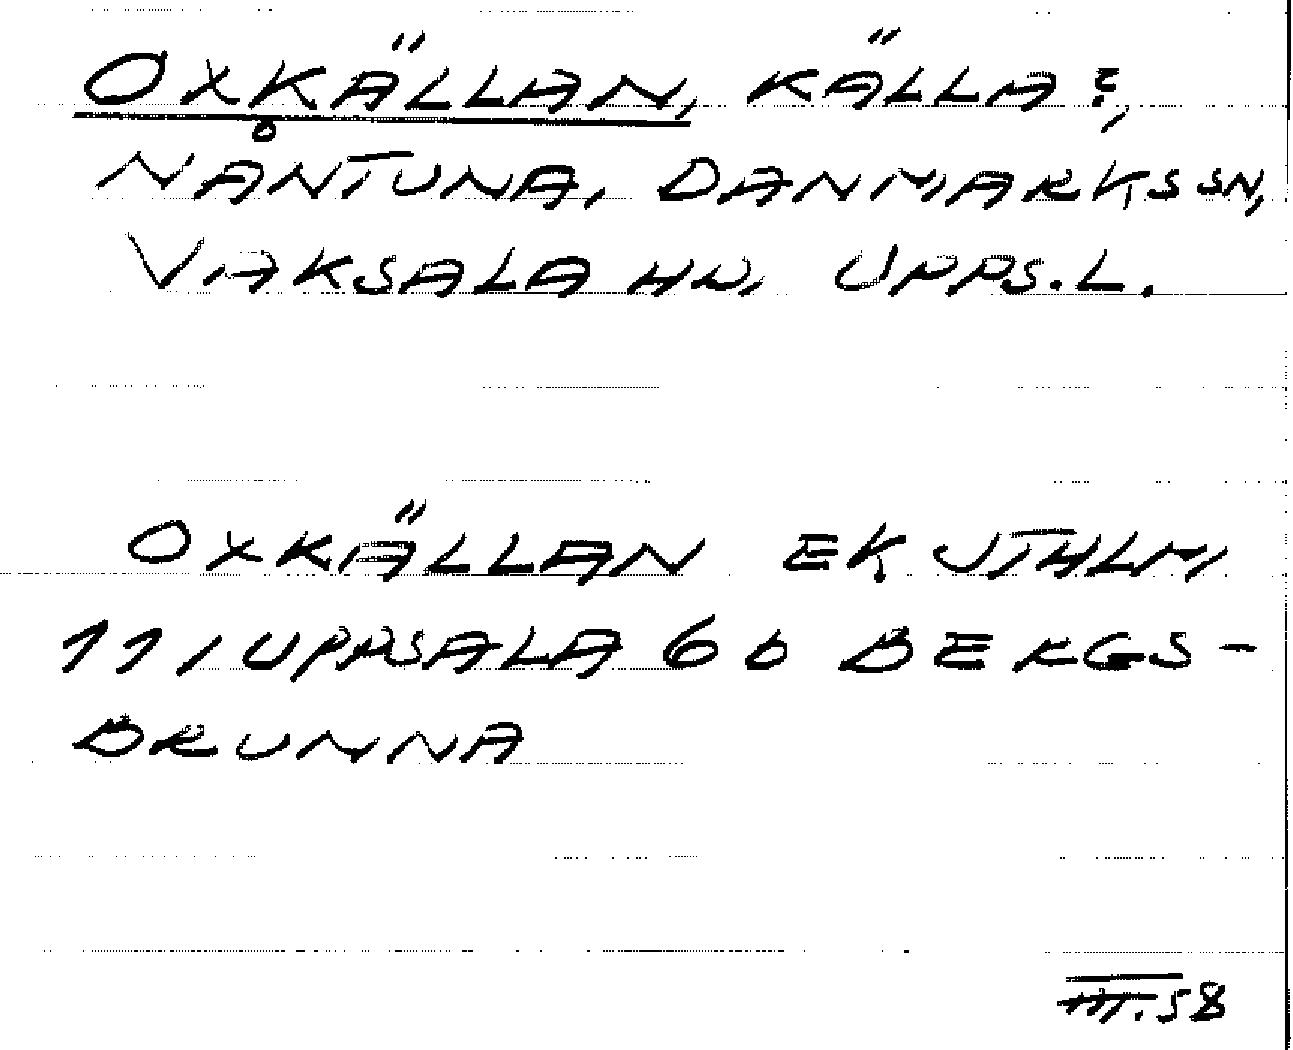 OXKÄLLAN, KÄLLA?,
NÅNTUNA, DANMARKS SN,
VAKSALA HD, UPPS.L.
OXKÄLLAN EK JTHLM
11 I UPPSALA 6 b BERGS-
BRUNNA
III.58